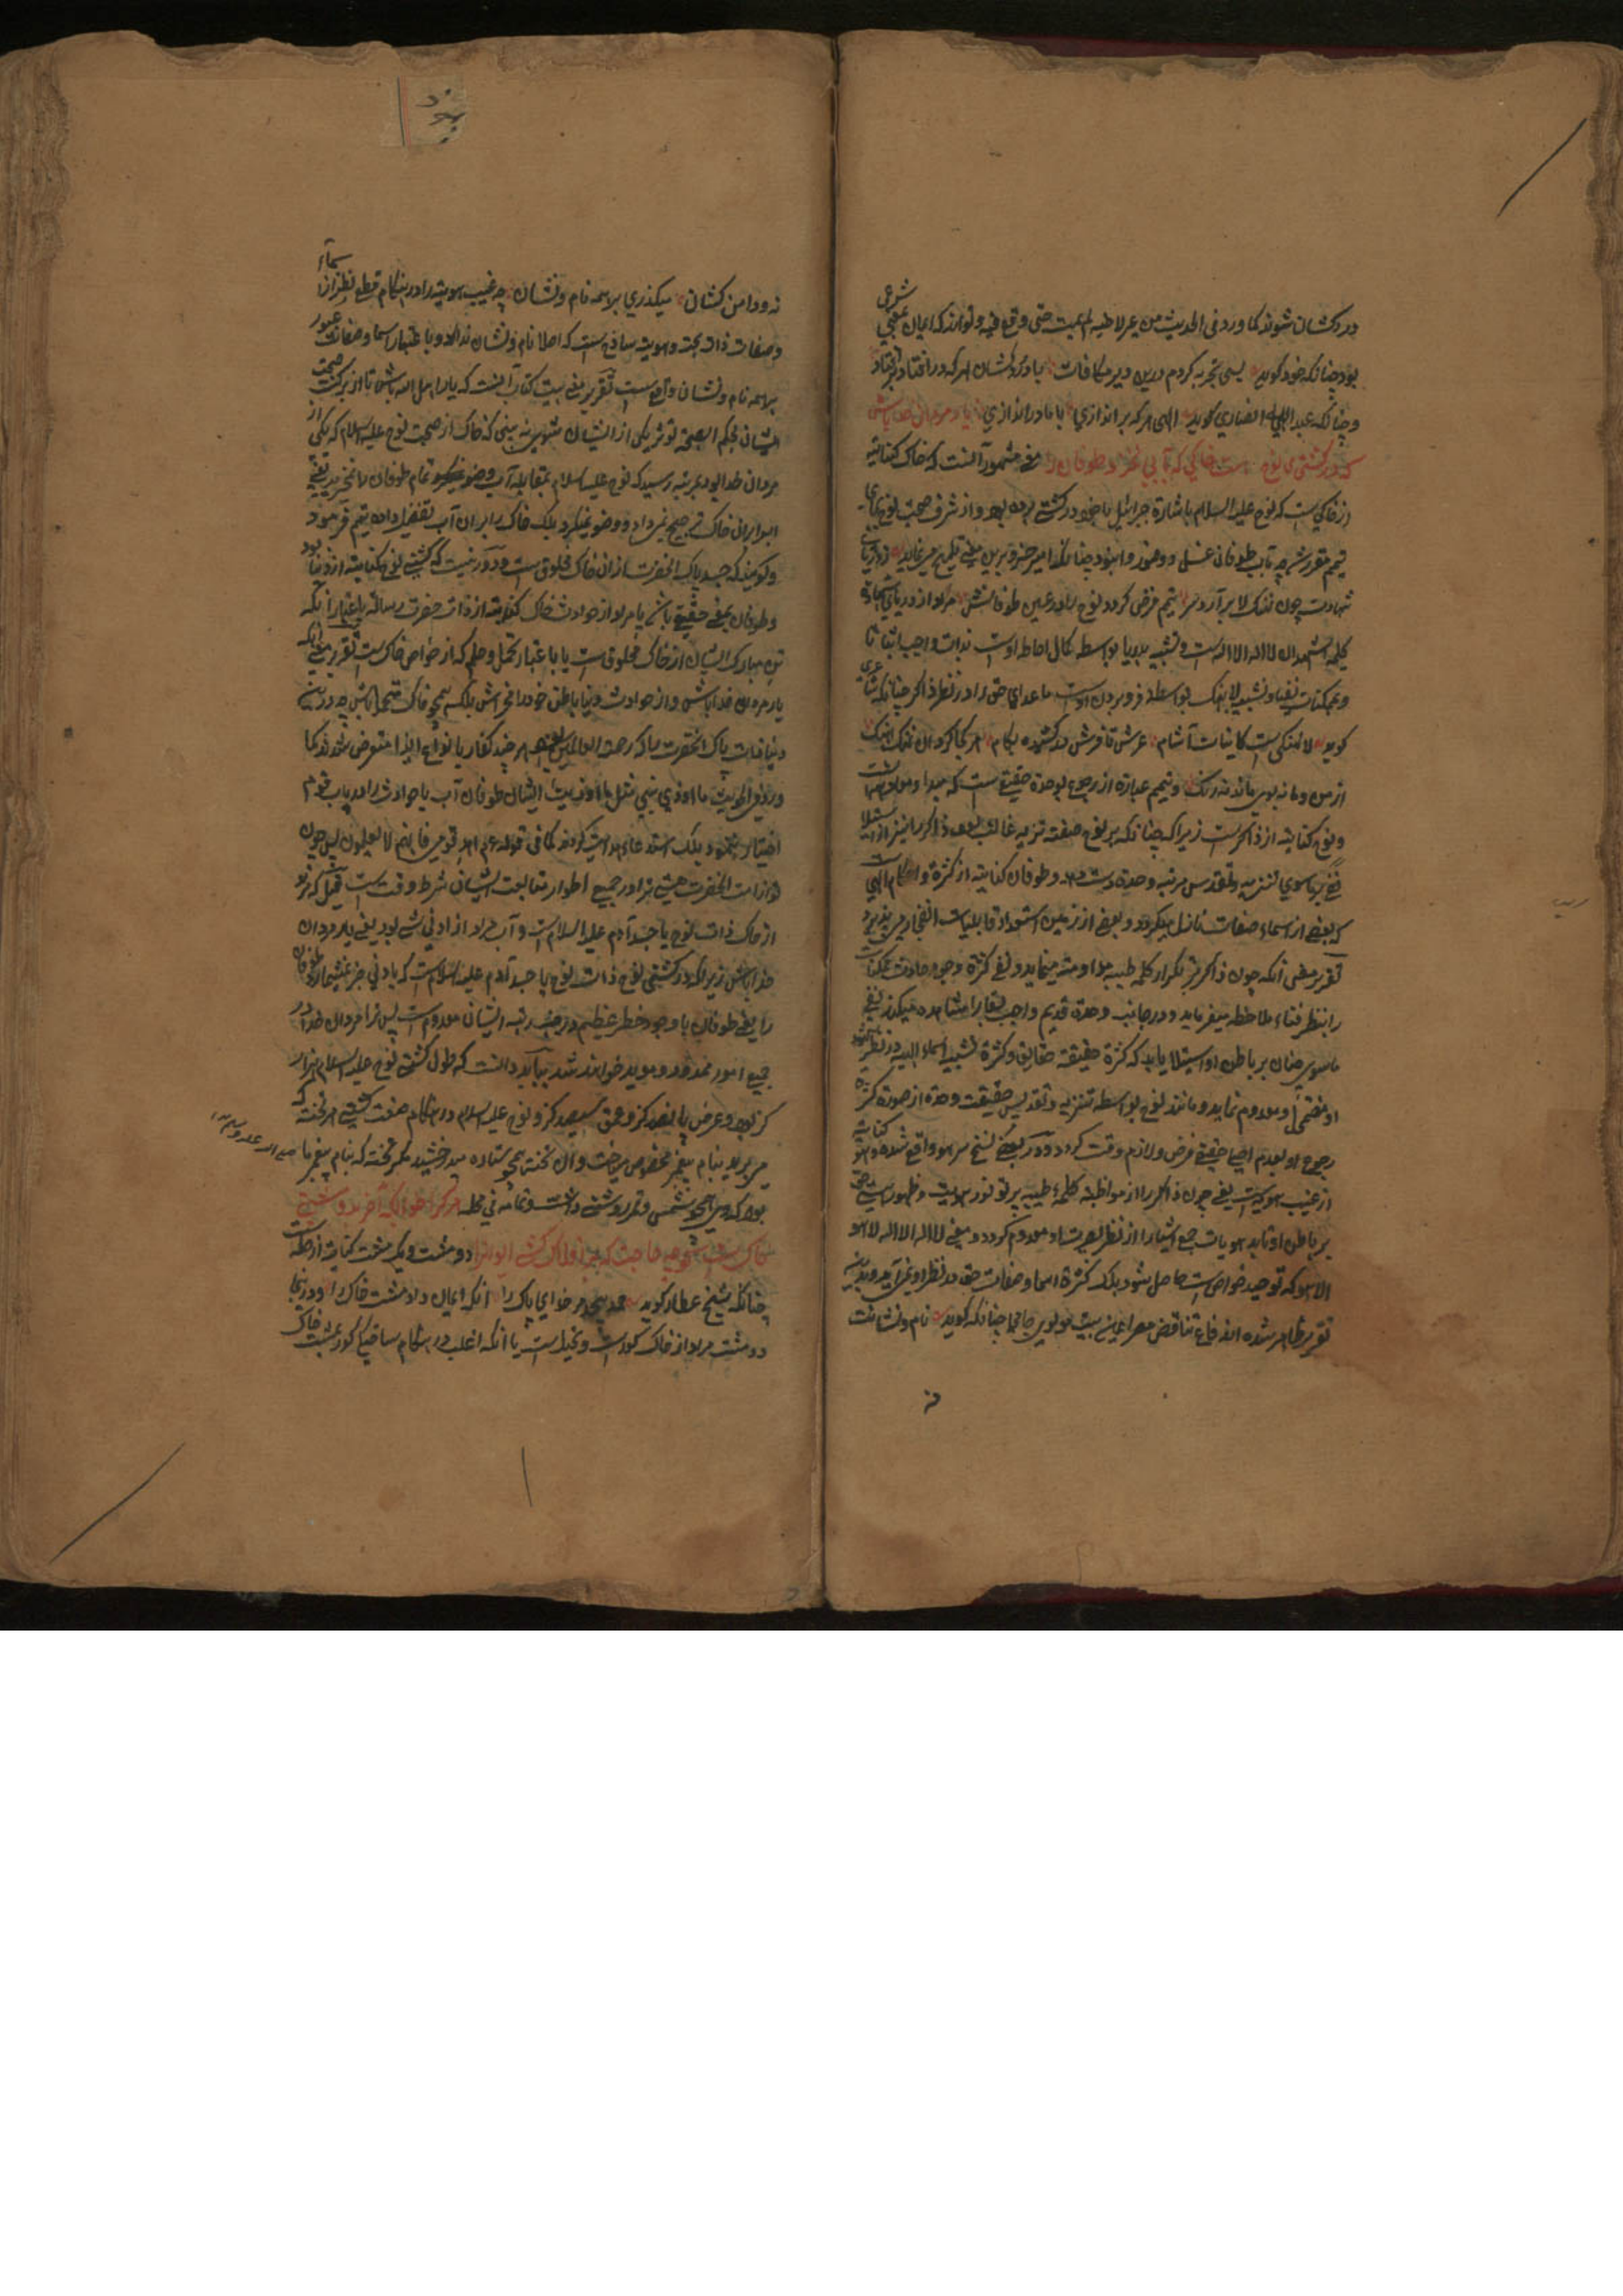 شرعی
درد کشان شوند کما ورد فی الحدیث من عیر لاخیه لم یمت حتی وقع فیه و توانند که ایمان حقیقی
بود چنانکه خود گوید بسی تجربه کردم درین دیر مکافات با درد کشان هر که در افتاد بر افتاد
و چنانکه عبد الله انصاری گوید الهی هر که بر اندازی با ما در اندازی یار مردان خدا باش
که در کشتی نوح هست خاکی که بآبی نخرد طوفان را معنی مشهور آنست که خاک کنایه
از خاکی ست که نوح علیه السلام باشارة جبرائیل با خود در کشتی برده بود و از شرف صحبت نوح بجای
تیمم مقرر شد چه تاب طوفان غسل و وضو روا نبود چنانکه امیر خسرو برین معنی تلمیح می نماید ز دریای
شهادت چون نهنگ لا برآرد سر تیمم فرض گردد نوح را در عین طوفانش مراد از دریای شهادة
کلمه اشهد ان لا اله الا الله است و تشبیه بدریا بواسطه کمال احاطه اوست بذات واجب اثباتا
و ممکنات نفیا و تشبیه لا بنهنگ بواسطه فرو بردن اوست ما عدای حق را در نظر ذاکر چنانکه شاعری
گوید لا نهنگی ست کاینات آشام عرش تا فرش در کشیده بکام هر کجا کرده آن نهنگ آهنگ
از من و ما نه بوی ماند نه رنگ و تیمم عبارة از رجوع بوحدة حقیقی ست که مبدا و معاد اشیاست
و نوح کنایه از ذاکر ست زیرا که چنانکه بر نوح صفت تنزیه غالب بود ذاکر را نیز از استیلا
نفی ما سوی تنزیه و تقدس مرتبه وحدة دست دهد و طوفان کنایه از کثرة و احکام الهی ست
که بعضی از اسماء صفات نازل میگردد و بعضی از زمین استعداد قابلیات انفجار می پذیرد
تقریر معنی آنکه چون ذاکر بتکرار کلمه طیبه مداومة مینماید و نفی کثرة وجود حادث ممکنات
را بنظر فناء ملاحظه میفرماید و در جانب وحدة قدیم واجب بقا را مشاهده میکند نفی
ماسوی چنان بر باطن او استیلا یابد که کثرة حقیقة حقایق و کثرة نسبیه اسماء الهیه در نظر شهود
او مضمحل و معدوم نماید و مانند نوح بواسطه تنزیه و تقدیس حقیقت وحدة از صورة کثرة
رجوع او بعدم اصلی حقیقی فرض و لازم وقت گردد و در بعضی نسخ سر هو واقع شده و هو کنایه
از غیب هویت ست یعنی چون ذاکر را از مواظبة کلمه طیبه پرتو نور هویت و ظهور هستی حق
بر باطن او تابد هویات جمع اشیا را از نظر بصیرت او معدوم گردد و معنی لا اله الا الله لا هو
الا هو که توحید خواص ست حاصل شود بلکه کثرة اسما و صفات حق در نظر او نمی آید و بدین
تقریر ظاهر شده اندفاع تناقض مصراعین بیت مولوی جامی چنانکه گوید نام و نشانت
نه
نه و دامن کشان میگذری بر همه نام و نشان چه غیب هویة را در هنگام قطع نظر از اسماء
و صفات ذات بحت و هویة ساذج ست که اصلا نام و نشان ندارد و باعتبار اسما و صفات عبور
بر همه نام و نشان واقع ست تقریر معنی بیت کتاب آنست که یار اهل الله باش تا از برکت صحبت
ایشان بحکم الصحبة تؤثر یکی از ایشان شوی نه بینی که خاک از صحبت نوح علیه السلام که یکی از
مردان خدا بود بمرتبه رسید که نوح علیه السلام بمقابله آب وضو تمام طوفان را نخرید یعنی
آب را بر خاک ترجیح نمیداد و وضو نمیکرد بلکه خاک را بر آب تفضیل داده تیمم فرمود
و گویند که جسد پاک آنحضرت از آن خاک مخلوق ست و دور نیست که کشتی نوح کنایة از دنیا بود
و طوفان بمعنی حقیقی باشد یا مراد از حوادث خاک کنایة از ذات حضرت رسالة باعتبار آنکه
تن مبارک ایشان از خاک مخلوق ست یا باعتبار تحمل و حلم که از خواص خاک ست تقریر معنی آنکه
یار مردان خدا باش و از حوادث دنیا باطن خود را مخراش بلکه همچو خاک متحمل باش چه در زمین
دنیا ذات پاک آنحضرت را که رحمة للعالمین بود هر چند کفار بانواع ایذا متعرض شدند کما
ورد فی الحدیث ما اوذی نبی مثل ما اوذیت ایشان طوفان آب یا حوادث را در باب قوم
اختیار ننمود بلکه استدعاء هدایت کردند کما فی قوله ع م اهد قومی فانهم لا یعلمون پس چون
تو از امت آنحضرت هستی ترا در جمیع اطوار متابعت ایشان شرط وقت ست قیل که مراد
از خاک ذات نوح یا جسد آدم علیه السلام ست و آب مراد از ادنی شی بود یعنی یار مردان
خدا باش زیرا که در کشتی نوح ذات نوح یا جسد آدم علیه السلام ست که بادنی چیز نمیشمارد طوفان
را یعنی طوفان با وجود خطر عظیم در جنب رتبه ایشان معدوم ست پس ترا مردان خدا در
جمیع امور ممد و موید خواهند شد بباید دانست که طول کشتی نوح علیه السلام هزار
گز بود و عرض پانصد گز و عمق سیصد گز و نوح علیه السلام در هنگام صنعت کشتی هر تخته که
می برید بنام پیغمبر مخصوص میساخت و آن تخته همچو ستاره میدرخشید مگر تخته که بنام پیغمبر ما
صلی الله علیه و سلم
بود که وی همچو شمس و قمر روشنی داشت و تمامه فی محله هر کرا خوابگه آخر بدو مشتی
خاک ست گو چه حاجت که بر افلاک کشی ایوان را دو مشت و یک مشت کنایه از قلة ست
چنانکه شیخ عطار گوید حمد بیحد مر خدای پاک را آنکه ایمان داد مشت خاک را و در اینجا
دو مشت مراد از خاک گورست و تخیل ست یا آنکه اغلب در هنگام ساختن گور بمشت خاک